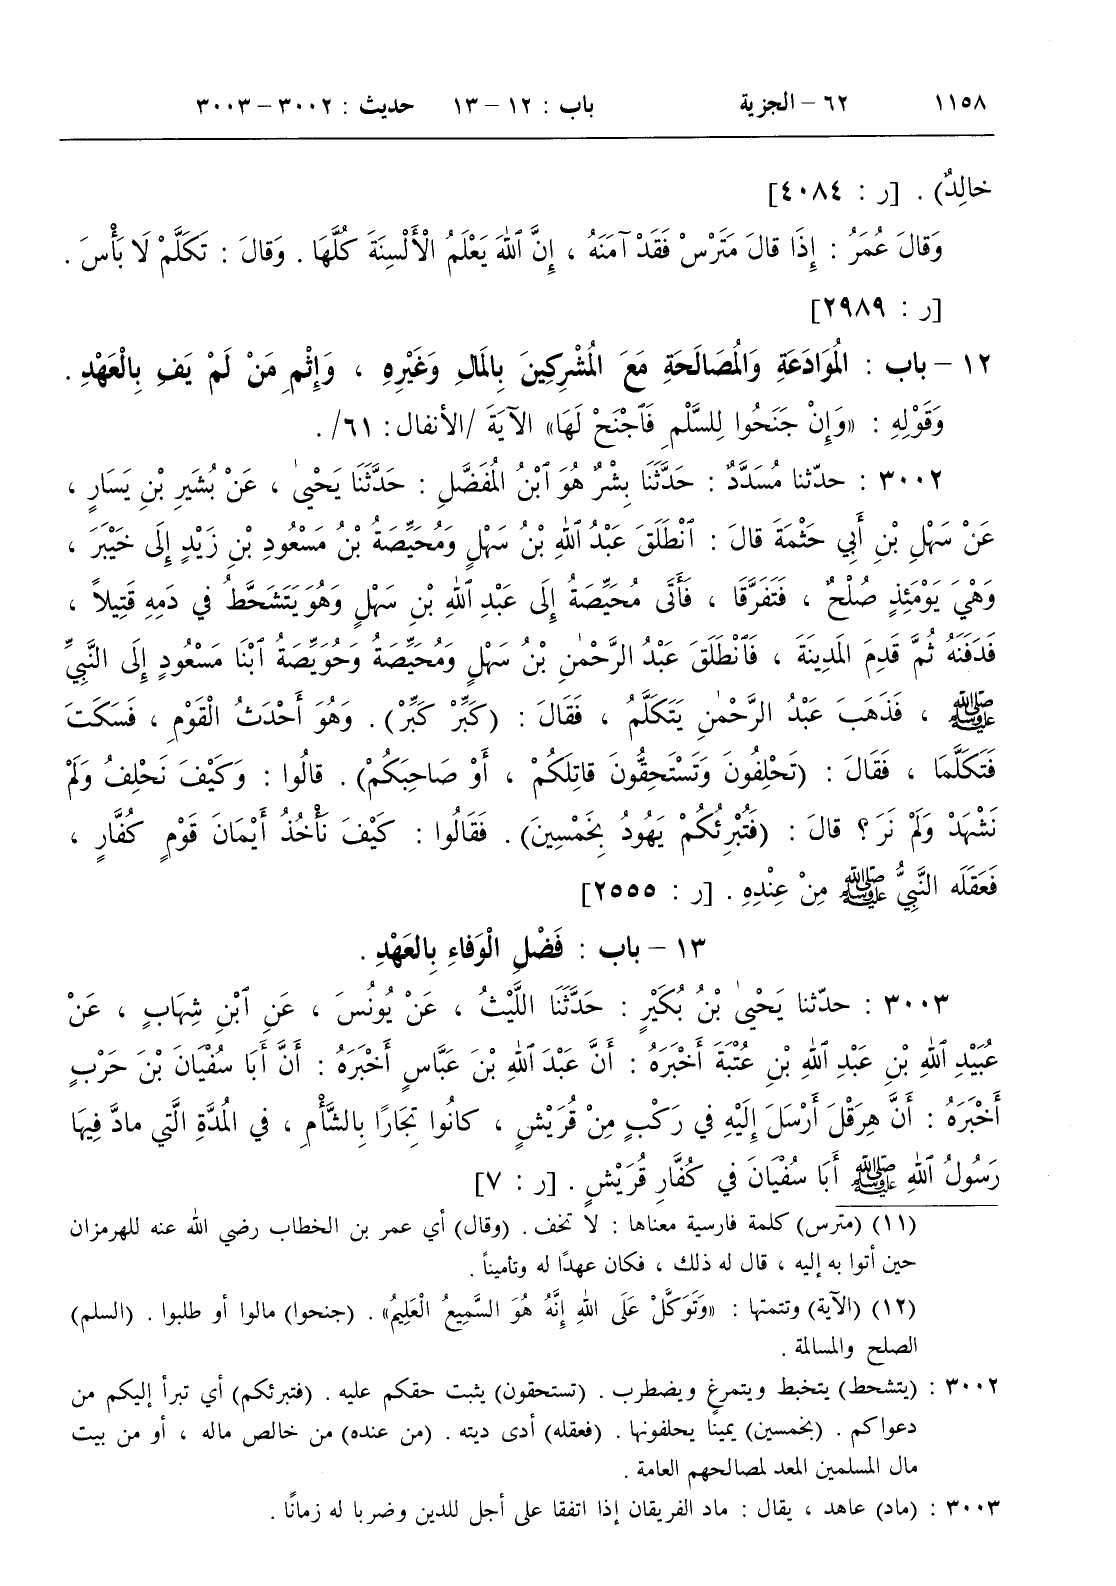 ١١٥٨ ٦٢ – الجزية باب : ١٢ – ١٣ حديث : ٣٠٠٢ – ٣٠٠٣
خالِدٌ) . [ر : ٤٠٨٤]
وَقالَ عُمَرُ : إِذَا قالَ مَتَرْسْ فَقَدْ آمَنَهُ ، إِنَّ ٱللهَ يَعْلَمُ الْأَلْسِنَةَ كُلَّهَا . وَقالَ : تَكَلَّمْ لَا بَأْسَ .
[ر : ٢٩٨٩]
١٢ – باب : الْمُوَادَعَةِ وَالْمُصَالَحَةِ مَعَ الْمُشْرِكِينَ بِالْمَالِ وَغَيْرِهِ ، وَإِثْمِ مَنْ لَمْ يَفِ بِالْعَهْدِ .
وَقَوْلِهِ : «وَإِنْ جَنَحُوا لِلسَّلْمِ فَٱجْنَحْ لَهَا» الآيَةَ /الأنفال: ٦١/ .
٣٠٠٢ : حدّثنا مُسَدَّدٌ : حَدَّثَنَا بِشْرٌ هُوَ ٱبْنُ الْمُفَضَّلِ : حَدَّثَنَا يَحْيىٰ ، عَنْ بُشَيرِ بْنِ يَسَارٍ ،
عَنْ سَهْلِ بْنِ أَبِي حَثْمَةَ قالَ : ٱنْطَلَقَ عَبْدُ ٱللهِ بْنُ سَهْلٍ وَمُحَيِّصَةُ بْنُ مَسْعُودِ بْنِ زَيْدٍ إِلَى خَيْبَرَ ،
وَهْيَ يَوْمَئِذٍ صُلْحٌ ، فَتَفَرَّقَا ، فَأَتَى مُحَيِّصَةُ إِلَى عَبْدِ ٱللهِ بْنِ سَهْلٍ وَهُوَ يَتَشَحَّطُ في دَمِهِ قَتِيلاً ،
فَدَفَنَهُ ثُمَّ قَدِمَ الْمَدِينَةَ ، فَٱنْطَلَقَ عَبْدُ الرَّحْمٰنِ بْنُ سَهْلٍ وَمُحَيِّصَةُ وَحُوَيِّصَةُ ٱبْنَا مَسْعُودٍ إِلَى النَّبِيِّ
ﷺ ، فَذَهَبَ عَبْدُ الرَّحْمٰنِ يَتَكَلَّمُ ، فَقَالَ : (كَبِّرْ كَبِّرْ) . وَهُوَ أَحْدَثُ الْقَوْمِ ، فَسَكَتَ
فَتَكَلَّمَا ، فَقَالَ : (تَحْلِفُونَ وَتَسْتَحِقُّونَ قاتِلَكُمْ ، أَوْ صَاحِبَكُمْ) . قالُوا : وَكَيْفَ نَحْلِفُ وَلَمْ
نَشْهَدْ وَلَمْ نَرَ ؟ قالَ : (فَتُبْرِئُكُمْ يَهُودُ بِخَمْسِينَ) . فَقَالُوا : كَيْفَ نَأْخُذُ أَيْمَانَ قَوْمٍ كُفَّارٍ ،
فَعَقَلَه النَّبِيُّ ﷺ مِنْ عِنْدِهِ . [ر : ٢٥٥٥]
١٣ – باب : فَضْلِ الْوَفاءِ بِالْعَهْدِ .
٣٠٠٣ : حدّثنا يَحْيىٰ بْنُ بُكَيْرٍ : حَدَّثَنَا اللَّيْثُ ، عَنْ يُونُسَ ، عَنِ ٱبْنِ شِهَابٍ ، عَنْ
عُبَيْدِ ٱللهِ بْنِ عَبْدِ ٱللهِ بْنِ عُتْبَةَ أَخْبَرَهُ : أَنَّ عَبْدَ ٱللهِ بْنَ عَبَّاسٍ أَخْبَرَهُ : أَنَّ أَبَا سُفْيَانَ بْنَ حَرْبٍ
أَخْبَرَهُ : أَنَّ هِرَقْلَ أَرْسَلَ إِلَيْهِ في رَكْبٍ مِنْ قُرَيْشٍ ، كانُوا تِجَارًا بِالشَّأْمِ ، في الْمُدَّةِ الَّتِي مادَّ فِيهَا
رَسُولُ ٱللهِ ﷺ أَبَا سُفْيَانَ في كُفَّارِ قُرَيْشٍ . [ر : ٧]
(١١) (مترس) كلمة فارسية معناها : لا تخف . (وقال) أي عمر بن الخطاب رضي الله عنه للهرمزان
حين أتوا به إليه ، قال له ذلك ، فكان عهدًا له وتأميناً .
(١٢) (الآية) وتتمتها : «وَتَوَكَّلْ عَلَى اللهِ إِنَّهُ هُوَ السَّمِيعُ الْعَلِيمُ» . (جنحوا) مالوا أو طلبوا . (السلم)
الصلح والمسالمة .
٣٠٠٢ : (يتشحط) يتخبط ويتمرغ ويضطرب . (تستحقون) يثبت حقكم عليه . (فتبرئكم) أي تبرأ إليكم من
دعواكم . (بخمسين) يمينًا يحلفونها . (فعقله) أدى ديته . (من عنده) من خالص ماله ، أو من بيت
مال المسلمين المعد لمصالحهم العامة .
٣٠٠٣ : (ماد) عاهد ، يقال : ماد الفريقان إذا اتفقا على أجل للدين وضربا له زمانًا .